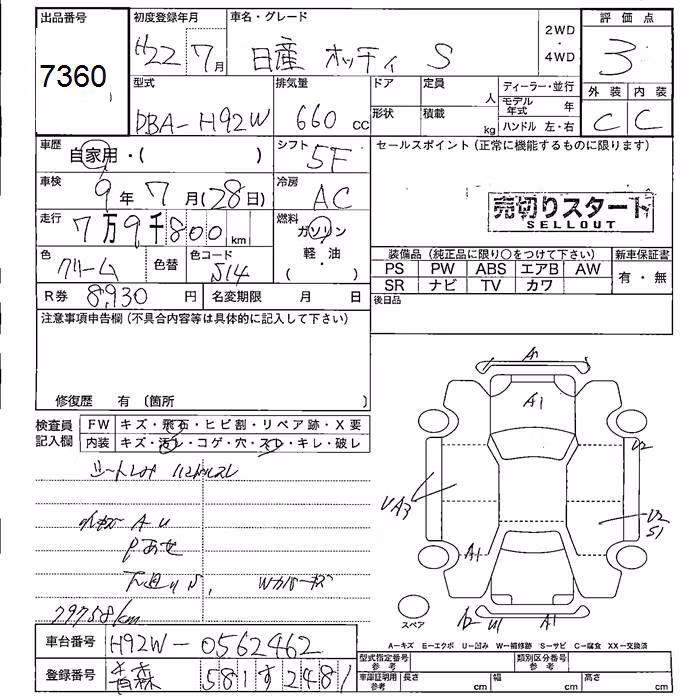 出品番号 初度登録年月 車名・グレード 評価点
7360 H22 7月 日産 オッティ S 2WD・4WD 3
型式 排気量 ドア 定員 人 ディーラー・並行 外装 内装
DBA-H92W 660 cc 形状 積載 kg モデル年式 年 C C
ハンドル 左・右
車歴 自家用・( ) シフト 5F セールスポイント (正常に機能するものに限ります)
車検 9年 7月(28日) 冷房 AC
売切りスタート
SELLOUT
走行 7万9千800km 燃料 ガソリン
軽・油
( ・ )
装備品(純正品に限り○をつけて下さい) 新車保証書
色 クリーム 色替 色コード J14
PS PW ABS エアB AW 有・無
SR ナビ TV カワ
R券 8,930円 名変期限 月 日 後日品
注意事項申告欄(不具合内容等は具体的に記入して下さい)
修復歴 有 〔箇所 〕
検査員記入欄 FW キズ・飛石・ヒビ割・リペア跡・X要
内装 キズ・汚レ・コゲ・穴・スレ・キレ・破レ
A1
A1
U2
UA3
U2
S1
A1
A2 U1 A1
スペア
A-キズ E-エクボ U-凹み W-補修跡 S-サビ C-腐食 XX-交換済
79758km
車台番号 H92W-0562462
登録番号 青森 581 す 2481
型式指定番号 参考 類別区分番号 参考
車庫証明用 参考 長さ cm 幅 cm 高さ cm